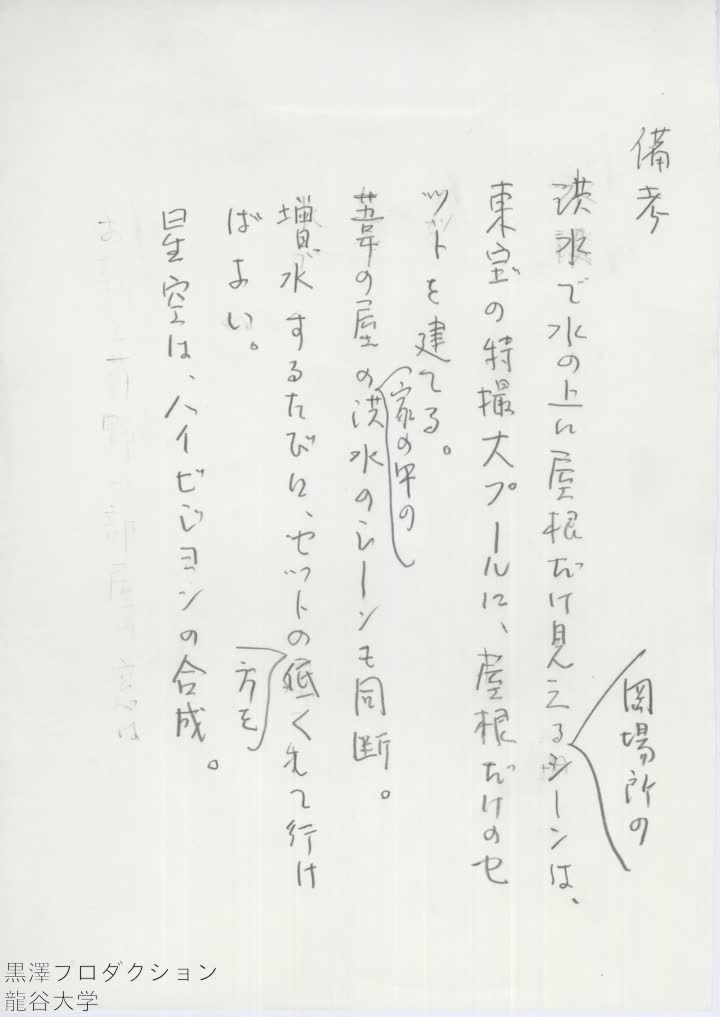 備考
岡場所の
洪水で水の上に屋根だけ見えるシーンは、
東宝の特撮大プールに、屋根だけのセ
ットを建てる。
家の中の
葦の屋の洪水のシーンも同断。
増水するたびに、セットの低くして行け
方を
ばよい。
星空は、ハイビジョンの合成。
黒澤フロダクション
龍谷大学